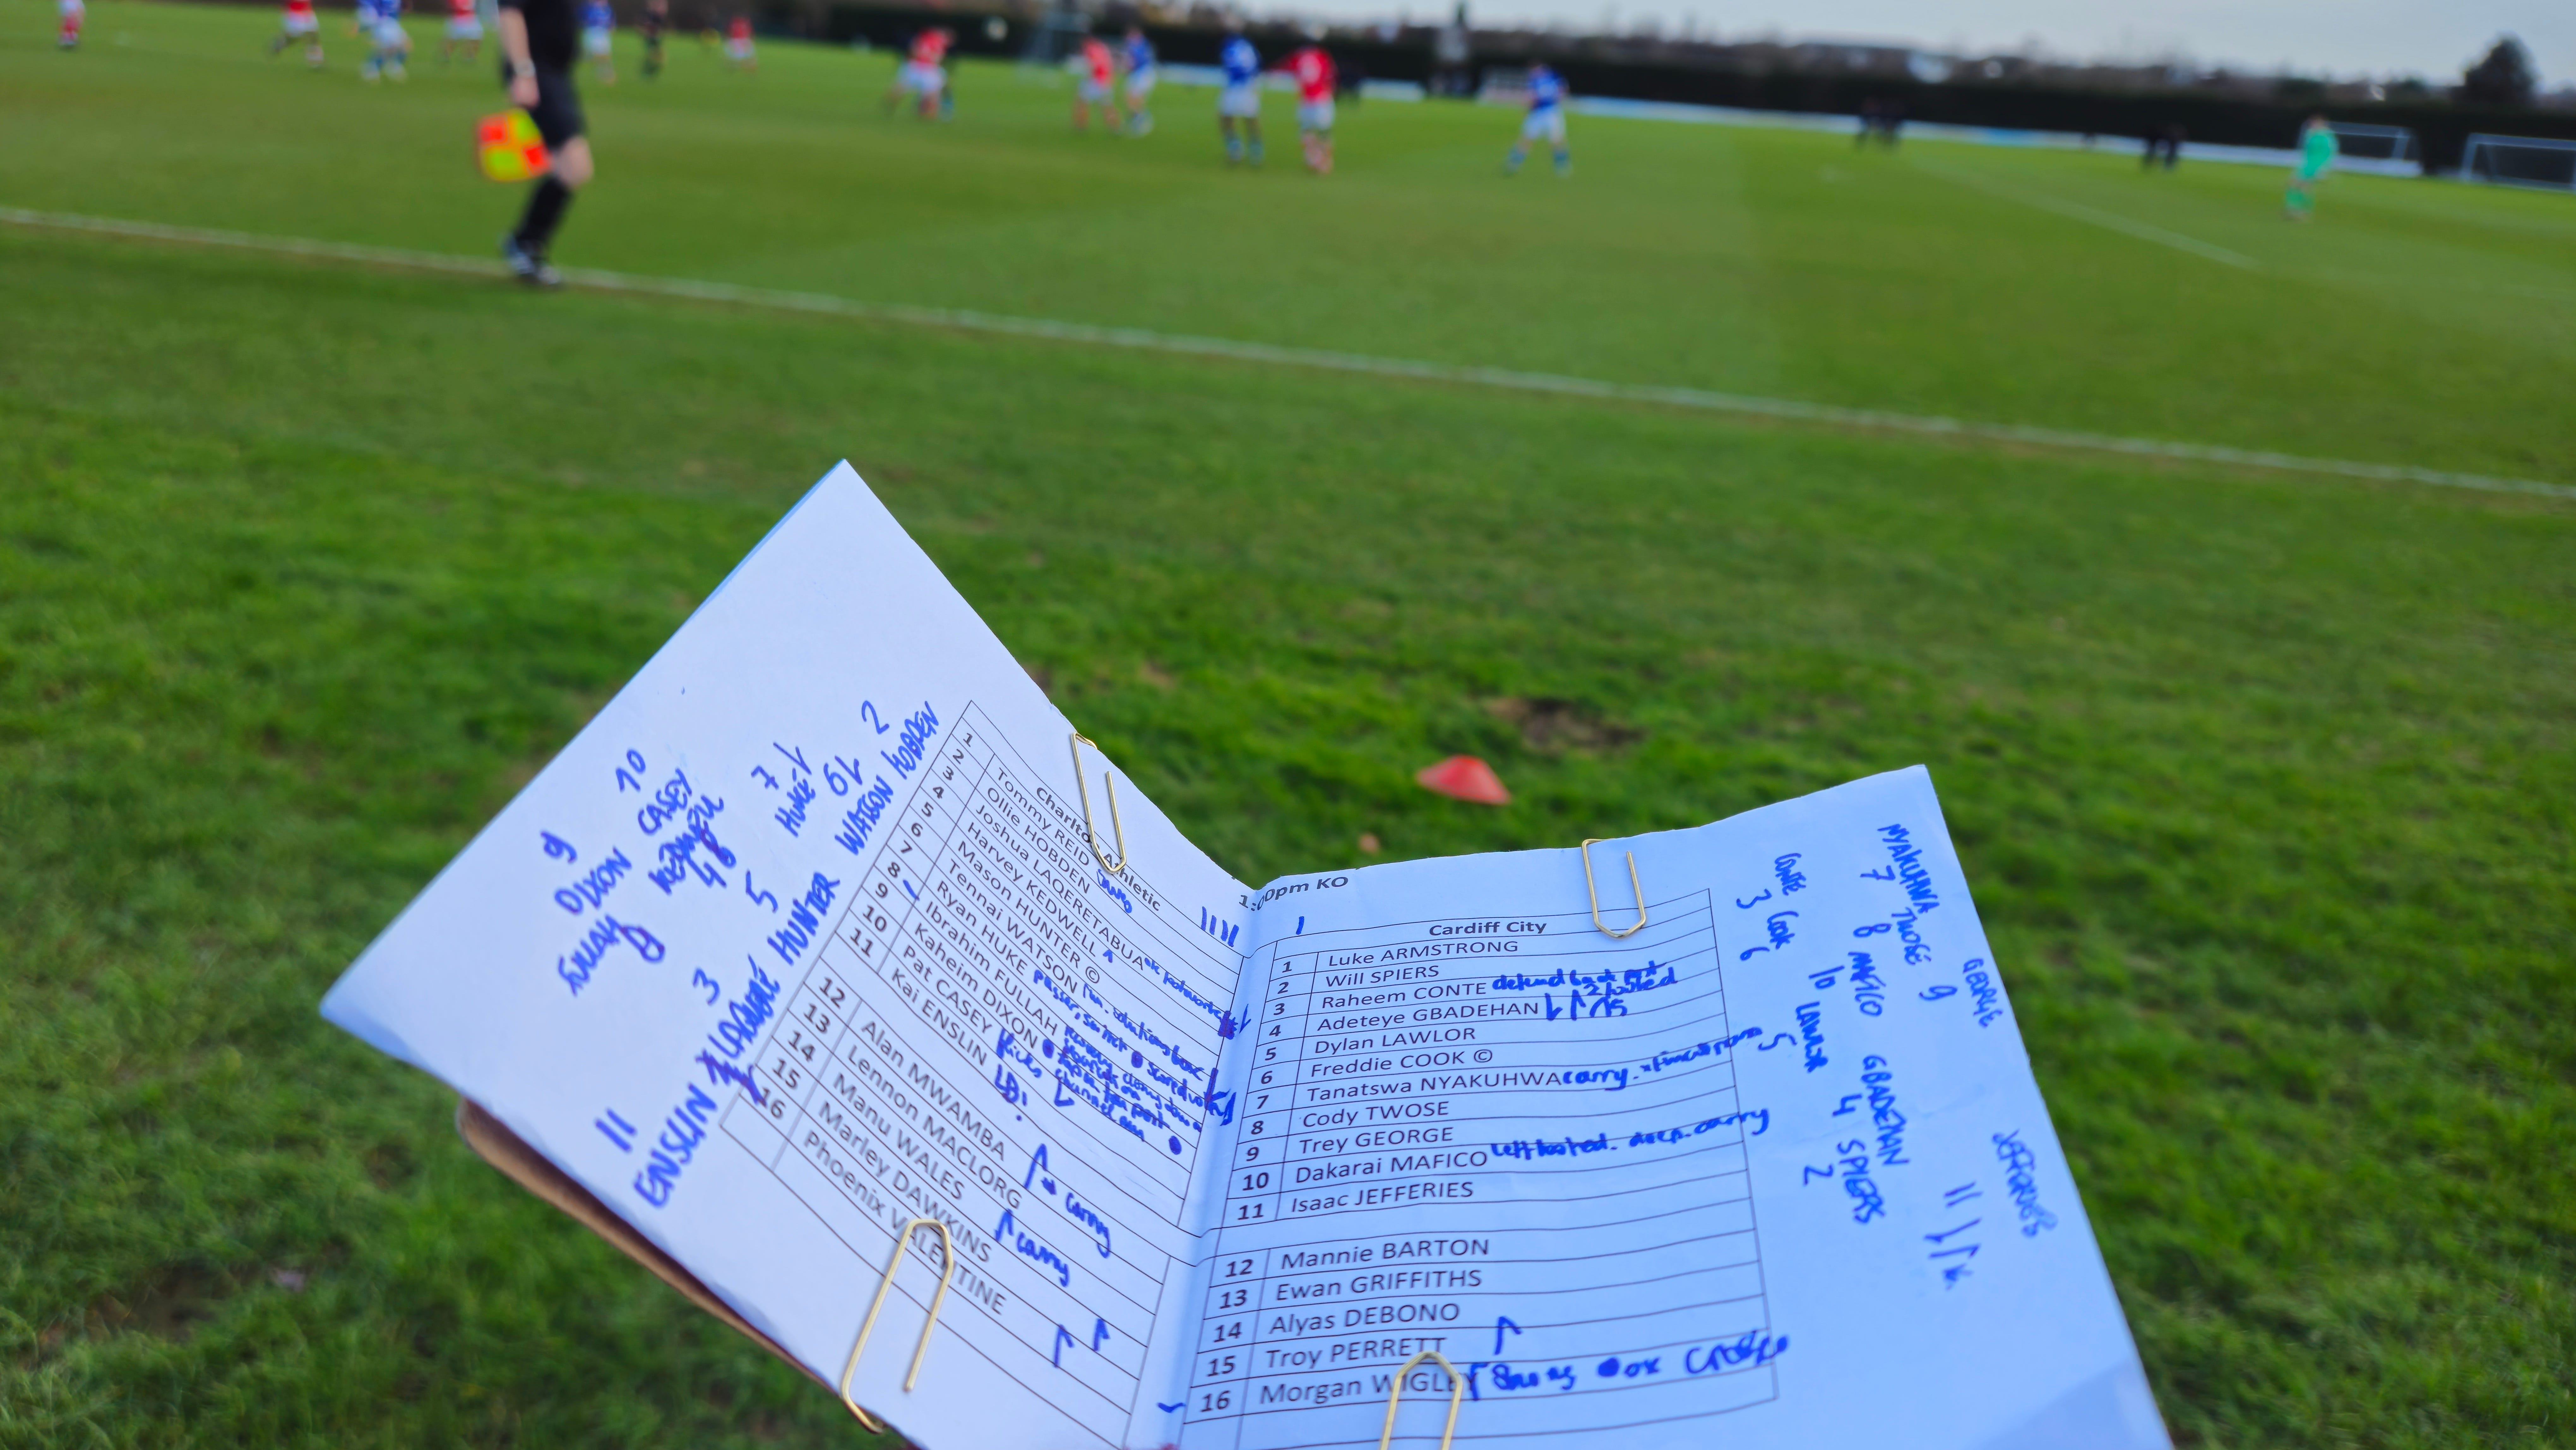 10
9
DIXON CASEY
KEDWELL
8
7
HUKE
5
2
WATSON HOBDEN
HUNTER
3
11
ENSLIN
Charlto Athletic
1 Tommy REID
2 Ollie HOBDEN
3 Joshua LAOERETABUA
4 Harvey KEDWELL
5 Mason HUNTER ©
6 Tennai WATSON
7 Ryan HUKE
8 Ibrahim FULLAH
9 Kaheim DIXON
10 Pat CASEY flicks
11 Kai ENSLIN
12 Alan MWAMBA carry
13 Lennon MACLORG
14 Manu WALES carry
15 Marley DAWKINS
16 Phoenix VALENTINE
1:00pm KO
Cardiff City
1 Luke ARMSTRONG
2 Will SPIERS
3 Raheem CONTE defend back post
4 Adeteye GBADEHAN
5 Dylan LAWLOR
6 Freddie COOK ©
7 Tanatswa NYAKUHWA carry.
8 Cody TWOSE
9 Trey GEORGE
10 Dakarai MAFICO left footed. carry
11 Isaac JEFFERIES
12 Mannie BARTON
13 Ewan GRIFFITHS
14 Alyas DEBONO
15 Troy PERRETT
16 Morgan WIGLEY
NYAKUHWA
7
TWOSE
8
GEORGE
9
CONTE
3
COOK
6
MAFICO
10
LAWLOR
5
GBADEHAN
4
SPIERS
2
JEFFERIES
11